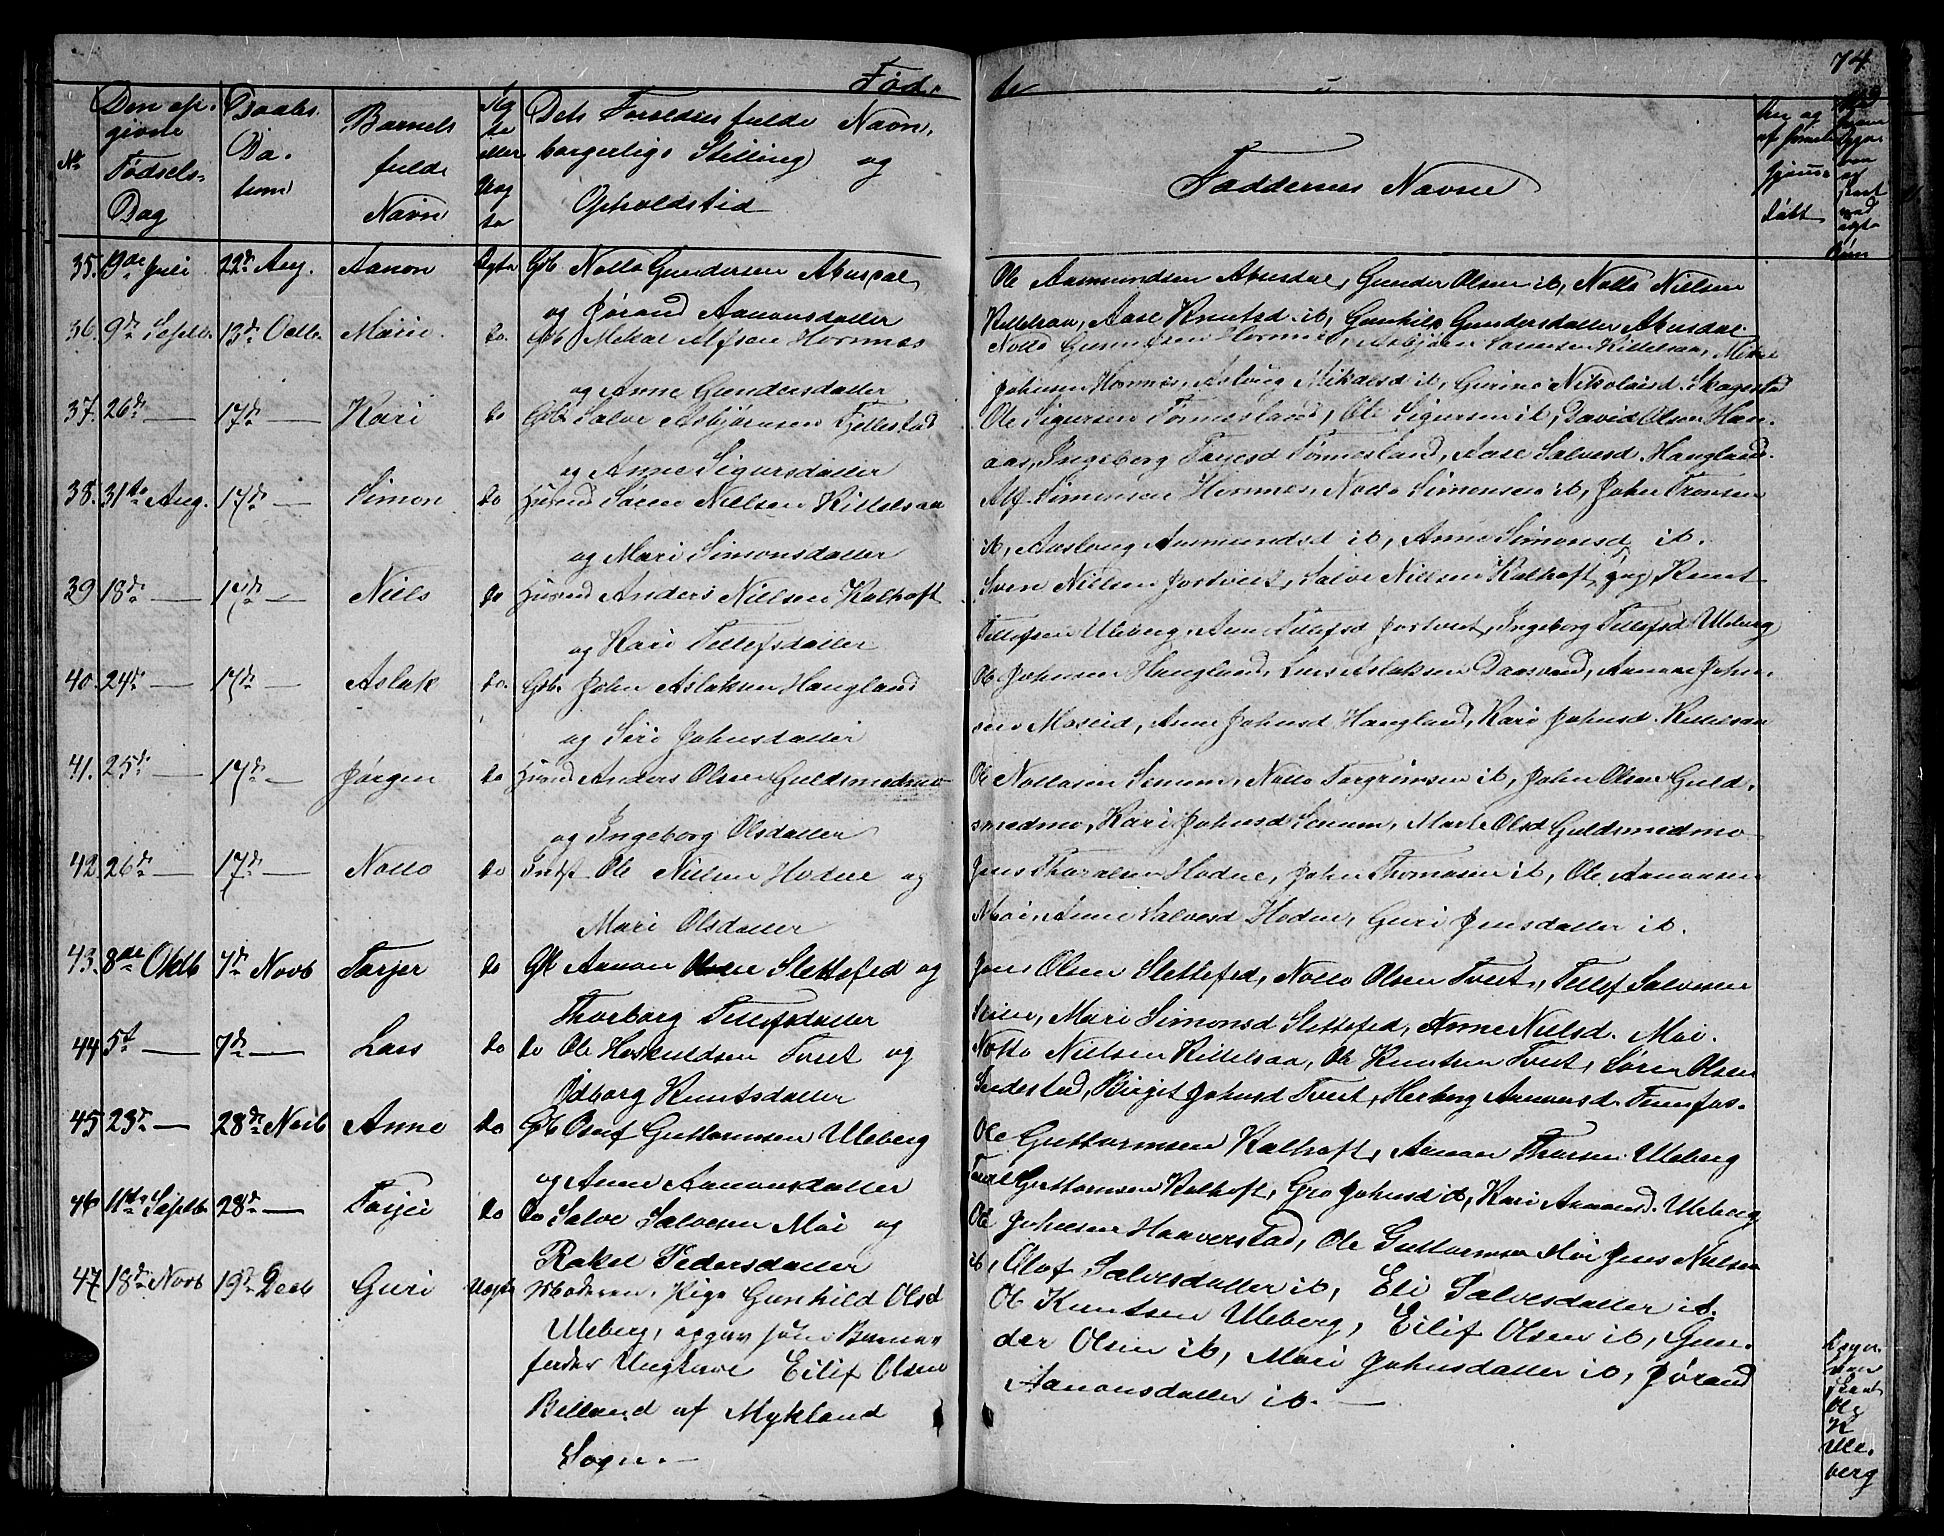 74
Fød-
te
No
Den op-
givne
Fødsels-
Dag
Daabs
Da-
tum
Barnets
fulde
Navn
Æg
te
eller
Uæg
te
Dets Forældres fulde Navn,
borgerlige Stilling og
Opholdsted
Faddernes Navne
35. 9de Juli 22de Aug. Aanon Ægte Gb. Notto Gundersen Abusdal
og Jørand Aanonsdatter
Ole Aasmundsen Abusdal, Gunder Olsen ib, Notto Nielsen
Kittelsaa, Aase Knutsd. ib, Gunhild Gundersdatter Abusdal.
36. 9de Septb. 13de Octb. Marie do. Gb. Mikal Alfsen Hornnes
og Anne Gundersdatter
Notto Asbjørn Kittelsaa, Mikal
Johnsen Hornnes, Aslaug Mikalsd ib, Gurine Nikolaisd. Skagestad
37. 26de — 17de — Kari do Gb. Salve Asbjørnsen Fjellestad
og Anne Sigursdatter
Ole Sigursen Tønnesland, Ole Sigursen ib, David Olsen Han-
aas, Ingeborg Terjesd Tønnesland, Aase Salvesd. Haugland.
38. 31te Aug. 17de — Simon do Huusmd Søren Nielsen Kittelsaa
og Mari Simonsdatter
Alf Simonsen Hornnes, Notto Simonsen ib, John Tronsen
ib, Aaslaug Aasmundsd ib, Anne Simonsd ib.
39 18de — 17de — Niels do Huusmd Anders Nielsen Kalhoft
og Kari Tellefsdatter
Sven Nielsen Jortveit, Salve Nielsen Kalhoft, Knut
Tellefsen Uleberg, Anne Tellefsd Jortveit, Ingeborg Tellefsd Uleberg
40. 24de — 17de — Aslak do. Gb. John Aslaksen Haugland
og Siri Johnsdatter
Ole Johnsen Haugland, Lars Aslaksen Daasvand, Aanon John-
sen Moseid, Anne Johnsd Haugland, Kari Johnsd. Kittelsaa
41. 25de — 17de — Jørgen do Huusmd Anders Olsen Guldsmedmo
og Ingeborg Olsdatter
Ole Nottosen Senum, Notto Torgrimsen ib, John Olsen Guld-
smedmo, Kari Johnsd Senum, Marte Olsd Guldsmedmo
42 26de — 17de — Notto do Indst Ole Nielsen Hodne og
Mari Olsdatter
Jens Tharalsen Hodne, John Thomasen ib, Ole Aanonsen
Moi Anne Salvesd Hodne, Guri Jensdatter ib.
43. 8de Octb 7de Novb Torjer do Gb Aanon Slettefed og
Thorborg Tellefsdatter
Jens Olsen Slettefed, Notto Olsen Tveit, Tellef Salvesen
Mari Simonsd Slettefed, Anne Nielsd. Moi.
44 5t — 7de — Lars do do Ole Hoskuldsen Tveit og
Odborg Knutsdatter
Notto Nielsen Kittelsaa, Ole Knutsen Tveit, Søren Olsen
Birgit Johnsd Tveit, Herborg Aanonsd. Fennefos.
45 23de — 28de Novb Anne do Gb Oluf Guttormsen Uleberg
og Anne Aanonsdatter
Ole Guttormsen Kalhoft, Aanon Thorsen Uleberg
Guttormsen Kalhoft, Gro Johnsd ib, Kari Aanonsd. Uleberg
46 11te Septb. 28de — Torjer do Do Salve Salvesen Moi og
Rakel Pedersdatter
Ole Johnsen Haaverstad, Ole Guttormsen Moi Jens Nielsen
ib, Olaf Salvesdatter ib, Eli Salvesdatter ib.
47 18de Novb 19de Decb Guri Uægte Moderen, Pige Gunhild Olsd
Uleberg, opgav som Barne-
fader Ungkarl Eilif Olsen
Bellland af Mykland
Sogn. —
Ole Knutsen Uleberg, Eilif Olsen ib, Gun-
der Olsen ib, Mari Johnsdatter ib, Jørand
Aanonsdatter ib. —
Ole
K
Ule-
berg